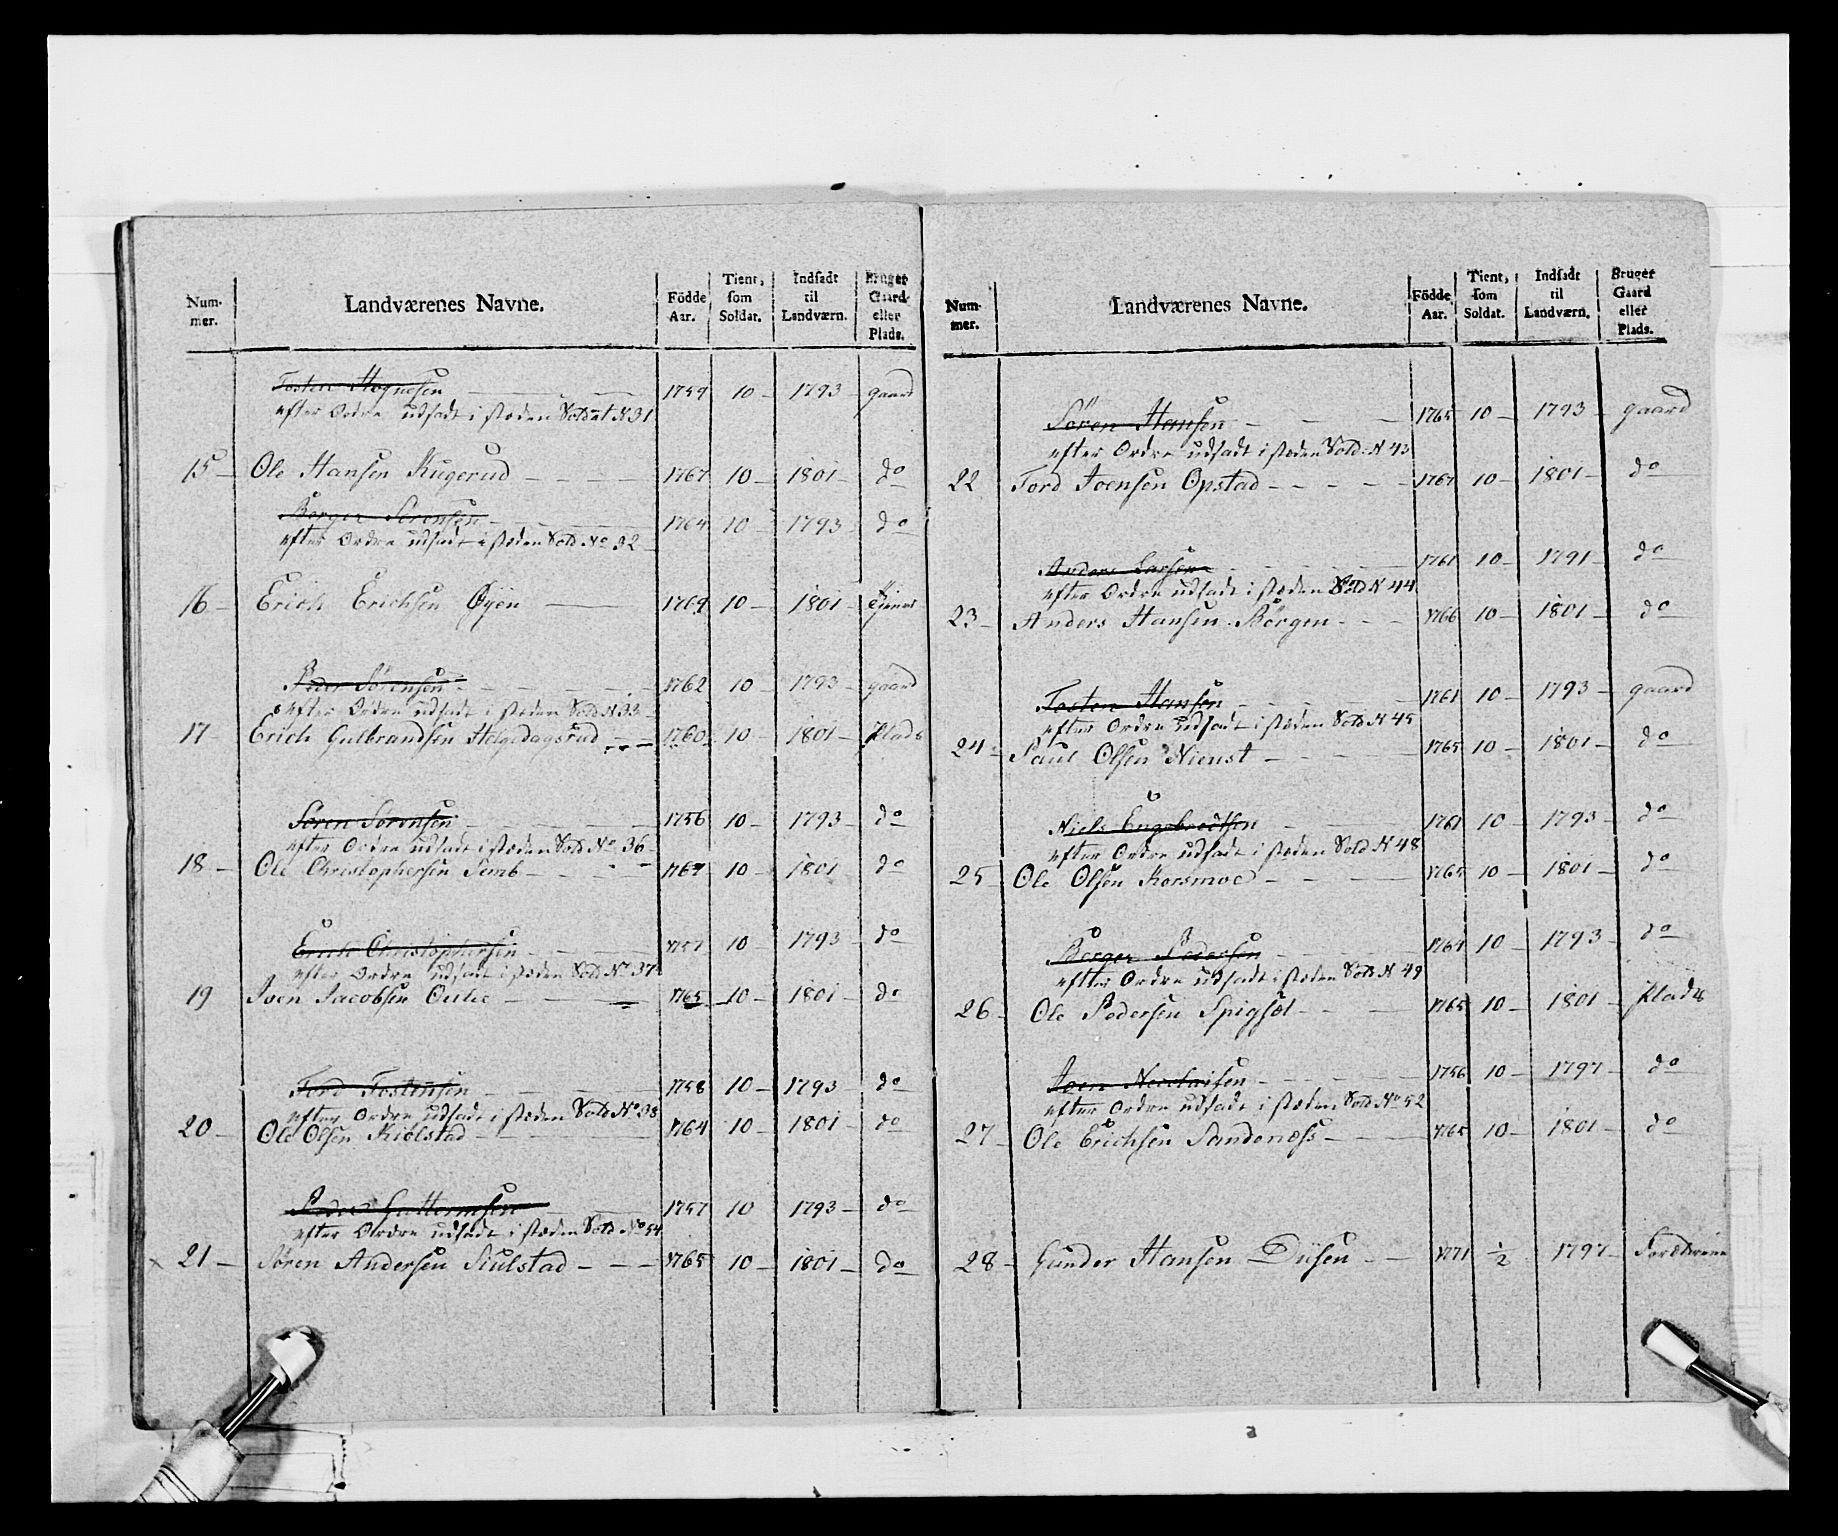 Num-mer. Landværenes Navne. Födde Aar. Tient, som Soldat. Indsadt til Landværn. Bruger Gaard eller Plads.
Tosten Hognesen 1759 10 1793 gaard
efter Ordre udsadt i stæden Soldat N 31
15 Ole Hansen Rugerud 1767 10 1801 do
Börger Sörensen 1764 10 1793 do
efter Ordre udsadt i stæden Sold No 32
16 Erich Erichsen Öyen 1769 10 1801
Peder Sörensen 1762 10 1793 gaard
efter Ordre udsadt i stæden Sold N 33
17 Erich Gulbrandsen Helgedagsrud 1760 10 1801 Plads
Sören Sörensen 1756 10 1793 do
efter Ordre udsadt i stæden Sold No 36
18 Ole Christophersen Semb 1767 10 1801 do
Erich Christophersen 1757 10 1793 do
efter Ordre udsadt i stæden Sold No 37
19 Joen Jacobsen 1765 10 1801 do
Tord Tostensen 1758 10 1793 do
efter Ordre udsadt i stæden Sold No 38
20 Ole Olsen Kiölstad 1764 10 1801 do
Peder Guttormsen 1757 10 1793 do
efter Ordre udsadt i stæden Sold No 54
21 Sören Andersen Kiulstad 1765 10 1801 do
Num-mer. Landværenes Navne. Födde Aar. Tient, som Soldat. Indsadt til Landværn. Bruger Gaard eller Plads.
Sören Hansen 1765 10 1793 gaard
efter Ordre udsadt i stæden Sold N 43
22 Tord Joensen Opstad 1767 10 1801 do
Anders Larsen 1761 10 1791 do
efter Ordre udsadt i stæden Sold N 44
23 Anders Hansen Börgen 1766 10 1801 do
Tosten Hansen 1761 10 1793 gaard
efter Ordre udsadt i stæden Sold N 45
24 Paul Olsen Nienst 1765 10 1801 do
Niels Engebredtsen 1761 10 1793 do
efter Ordre udsadt i stæden Sold N 48
25 Ole Olsen Korsmoe 1765 10 1801 do
Börger Pedersen 1764 10 1793 do
efter Ordre udsadt i stæden Sold N 49
26 Ole Pedersen Spigset 1765 10 1801 Plads
Joen Nicolaisen 1756 10 1797 do
efter Ordre udsadt i stæden Sold No 52
27 Ole Erichsen Sandenæss 1765 10 1801 do
28 Gunder Hansen Düsen 1771 1/2 1797